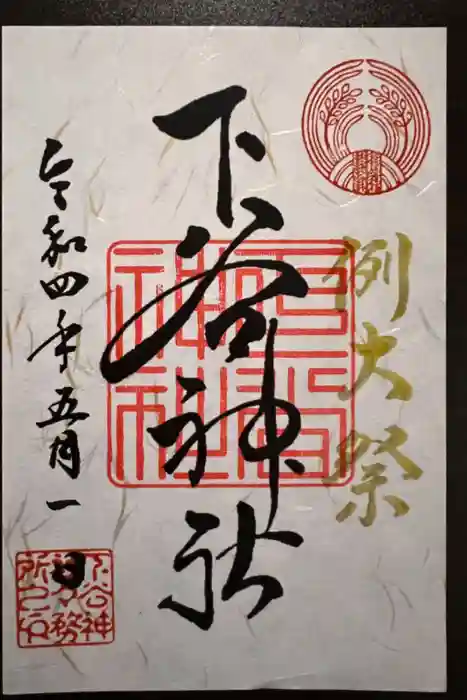 例大祭
下谷神社
令和四年五月一日
下谷神社
下谷神
社々務
所之印